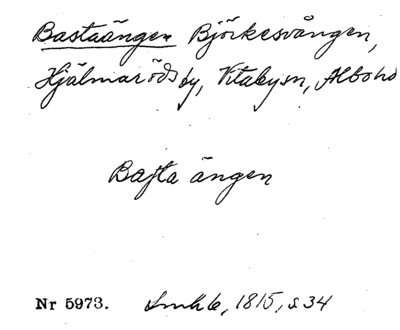 Bastaängen Björkesvången,
Hjälmaröds by, Vitabysn, Albo hd
Basta ängen
Nr 5973. Lmhl 6, 1815, s 34